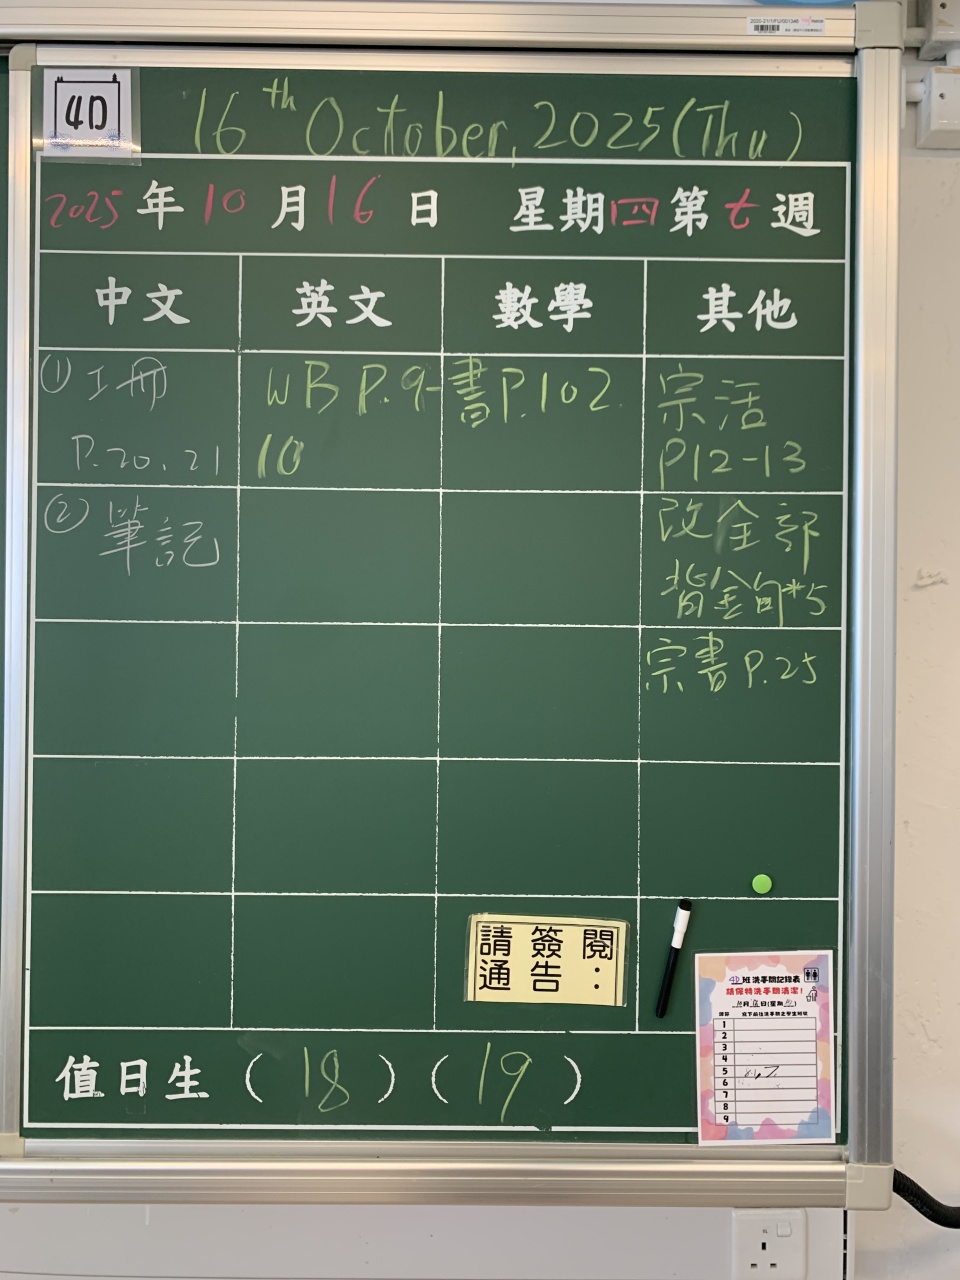 4D
16th October, 2025 (Thu)
2025 年 10 月 16 日 星期四 第七週
中文 英文 數學 其他
① 工冊
P.20, 21
WB P.9-
10
書P.102
宗活
P12-13
② 筆記
改全部
背金句*5
宗書 P.25
請簽閱
通告：
值日生 ( 18 ) ( 19 )
4D班洗手間記錄表
請保持洗手間清潔！
1
2
3
4
5
6
7
8
9